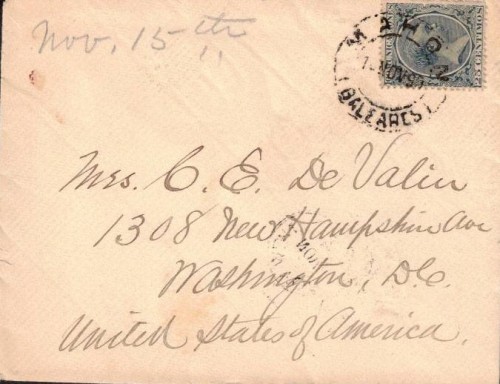 Nov. 15th
MAHON
NOV
BALEARES
25 CENTIMOS
Mrs. C. E. De Valin
1308 New Hampshire Ave
Washington, D.C.
United States of America.